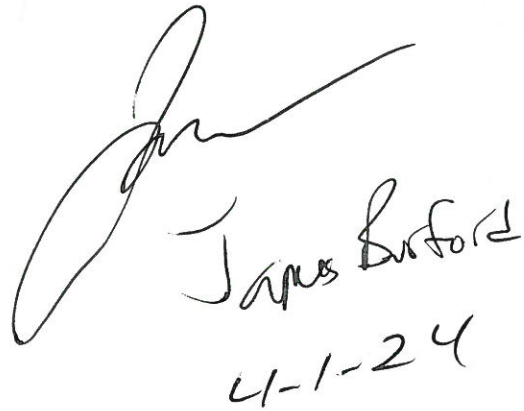 James Burford
4-1-24